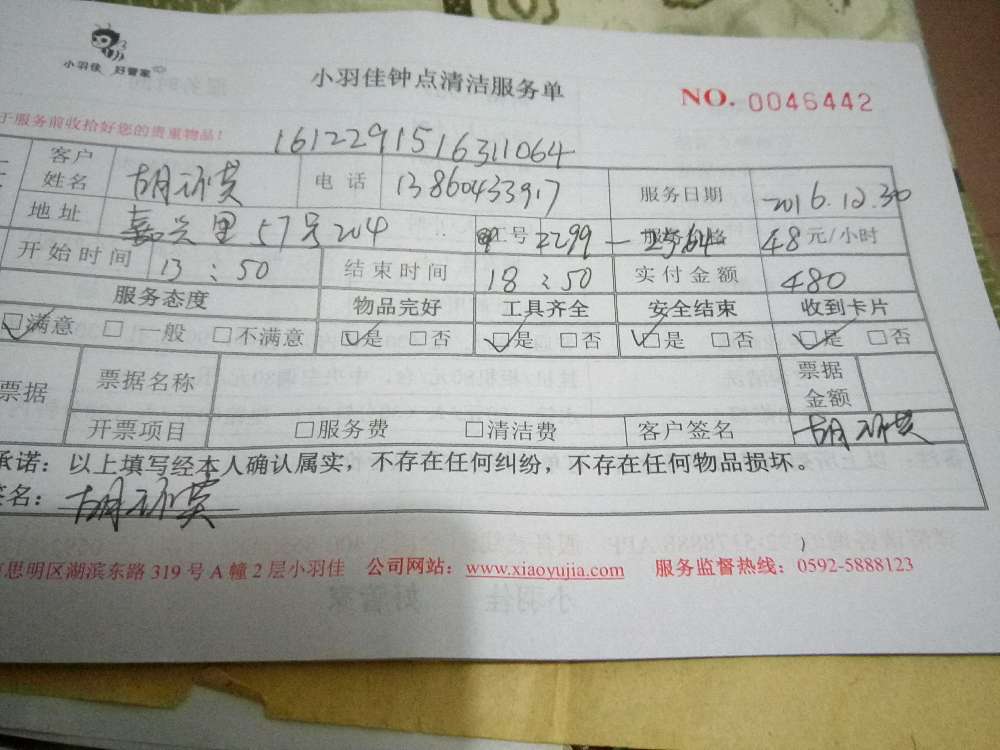 小羽佳 好管家
小羽佳钟点清洁服务单
NO. 0046442
于服务前收拾好您的贵重物品!
1612291516311064
客户姓名 电话 13860433917 服务日期 2016.12.30
地址 嘉兴里57号204 工号 2299-2564 48元/小时
开始时间 13:50 结束时间 18:50 实付金额 480
服务态度 物品完好 工具齐全 安全结束 收到卡片
☑满意 □一般 □不满意 ☑是 □否 ☑是 □否 ☑是 □否 ☑是 □否
票据 票据名称 票据金额
开票项目 □服务费 □清洁费 客户签名
承诺:以上填写经本人确认属实,不存在任何纠纷,不存在任何物品损坏。
签名:
思明区湖滨东路 319 号 A 幢 2 层小羽佳 公司网站:www.xiaoyujia.com 服务监督热线:0592-5888123